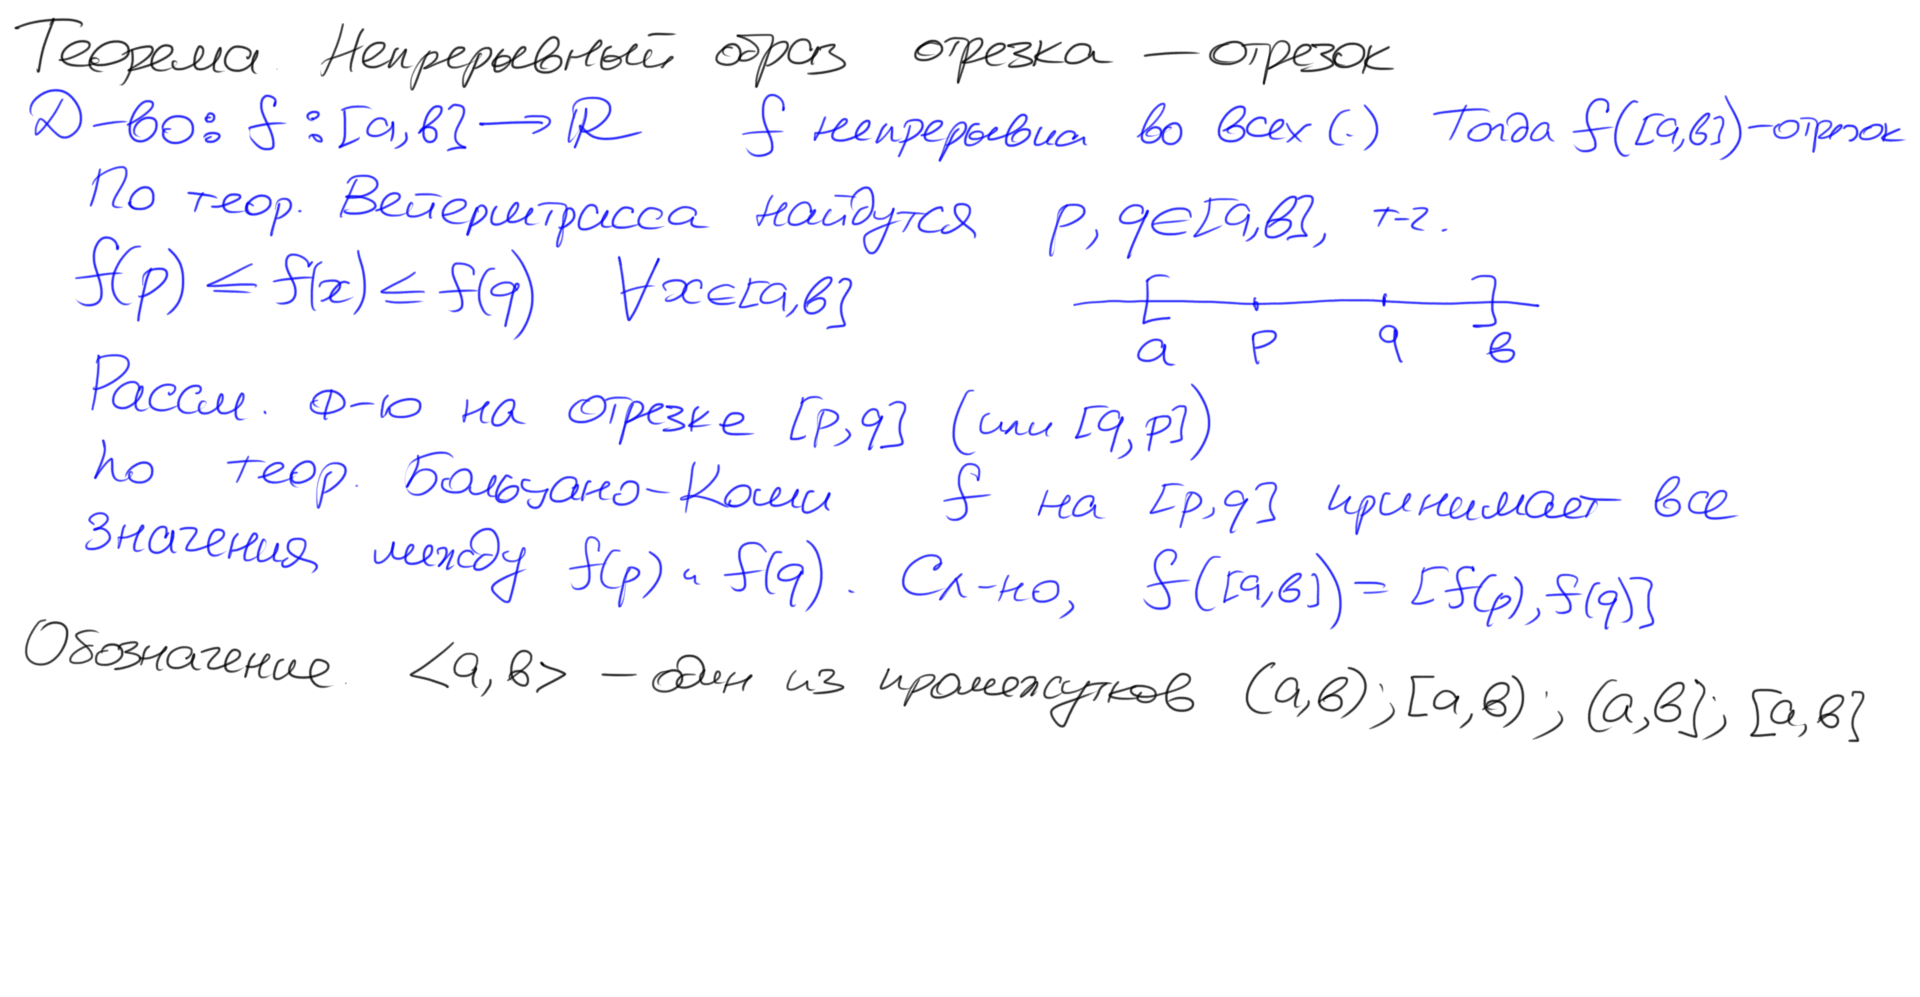 Теорема. Непрерывный образ отрезка — отрезок
Д-во: f : [a,b] → ℝ f непрерывна во всех (·) Тогда f([a,b]) – отрезок
По теор. Вейерштрасса найдутся p, q ∈ [a,b], т-ч.
f(p) ≤ f(x) ≤ f(q) ∀x∈[a,b]
a p q b
Рассм. ф-ю на отрезке [p,q] (или [q,p])
по теор. Больцано-Коши f на [p,q] принимает все
значения между f(p) и f(q). Сл-но, f([a,b]) = [f(p), f(q)]
Обозначение. <a,b> – один из промежутков (a,b); [a,b); (a,b]; [a,b]